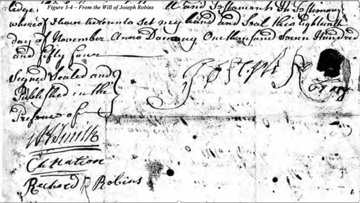 ledge.
Figure I-4 – From the Will of Joseph Robins
and Testament In Testimony
whereof I have hereunto Set my hand and Seal this Eighteenth
day of November Anno Domini One thousand Seven Hundred
and fifty four
Signed Sealed and
Published in the
Presence of
Joseph
Richard Robins